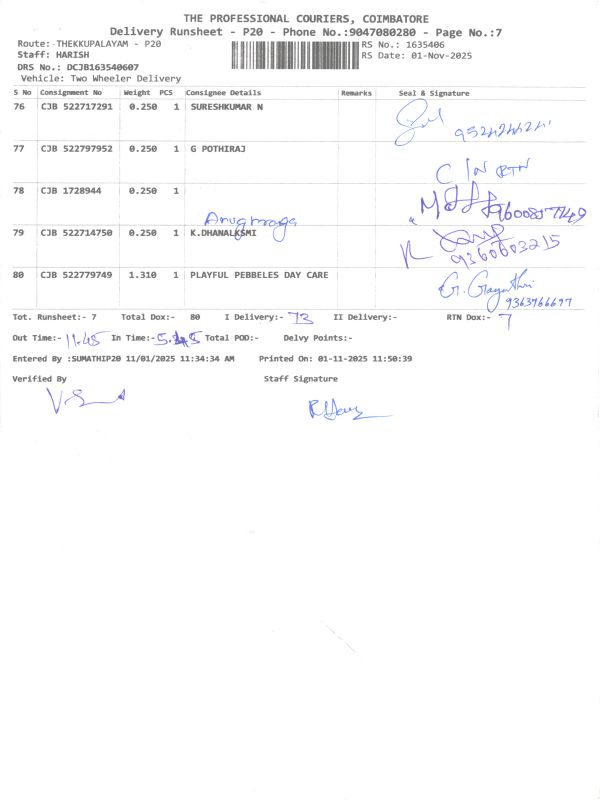 THE PROFESSIONAL COURIERS, COIMBATORE
Delivery Runsheet - P20 - Phone No.:9047080280 - Page No.:7
Route: THEKKUPALAYAM - P20 RS No.: 1635406
Staff: HARISH RS Date: 01-Nov-2025
DRS No.: DCJB163540607
Vehicle: Two Wheeler Delivery
S No Consignment No Weight PCS Consignee Details Remarks Seal & Signature
76 CJB 522717291 0.250 1 SURESHKUMAR N
77 CJB 522797952 0.250 1 G POTHIRAJ
C/N RTN
78 CJB 1728944 0.250 1
9600857749
79 CJB 522714750 0.250 1 K.DHANALKSMI
9360603215
80 CJB 522779749 1.310 1 PLAYFUL PEBBELES DAY CARE G. Gayathri
9363966697
Tot. Runsheet:- 7 Total Dox:- 80 I Delivery:- 73 II Delivery:- RTN Dox:- 7
Out Time:- 11.45 In Time:- Total POD:- Delvy Points:-
Entered By :SUMATHIP20 11/01/2025 11:34:34 AM Printed On: 01-11-2025 11:50:39
Verified By Staff Signature